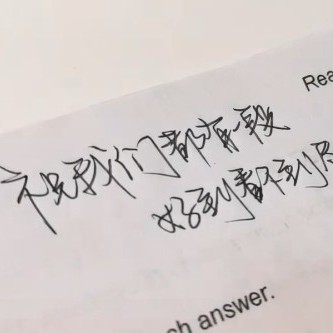 Rea
祝我们都有一段
好到看不到尽
ch answer.